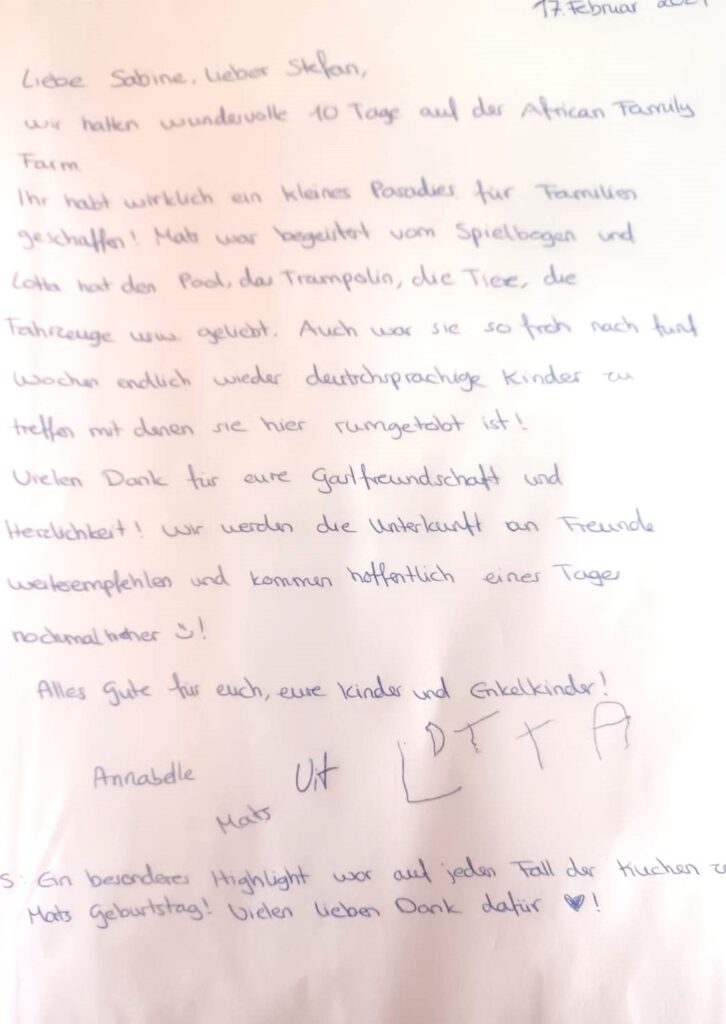 17. Februar
Liebe Sabine, lieber Stefan,
wir hatten wundervolle 10 Tage auf der African Family
Farm.
Ihr habt wirklich ein kleines Paradies für Familien
geschaffen! Mats war begeistert vom Spielbogen und
Lotta hat den Pool, das Trampolin, die Tiere, die
Fahrzeuge usw. geliebt. Auch war sie so froh nach fünf
Wochen endlich wieder deutschsprachige Kinder zu
treffen mit denen sie hier rumgetobt ist!
Vielen Dank für eure Gastfreundschaft und
Herzlichkeit! Wir werden die Unterkunft an Freunde
weiterempfehlen und kommen hoffentlich eines Tages
nochmal hieher ☺!
Alles Gute für euch, eure Kinder und Enkelkinder!
Annabelle
LOTTA
Mats
S: Ein besonderes Highlight war auf jeden Fall der Kuchen zu
Mats Geburtstag! Vielen lieben Dank dafür ♥!